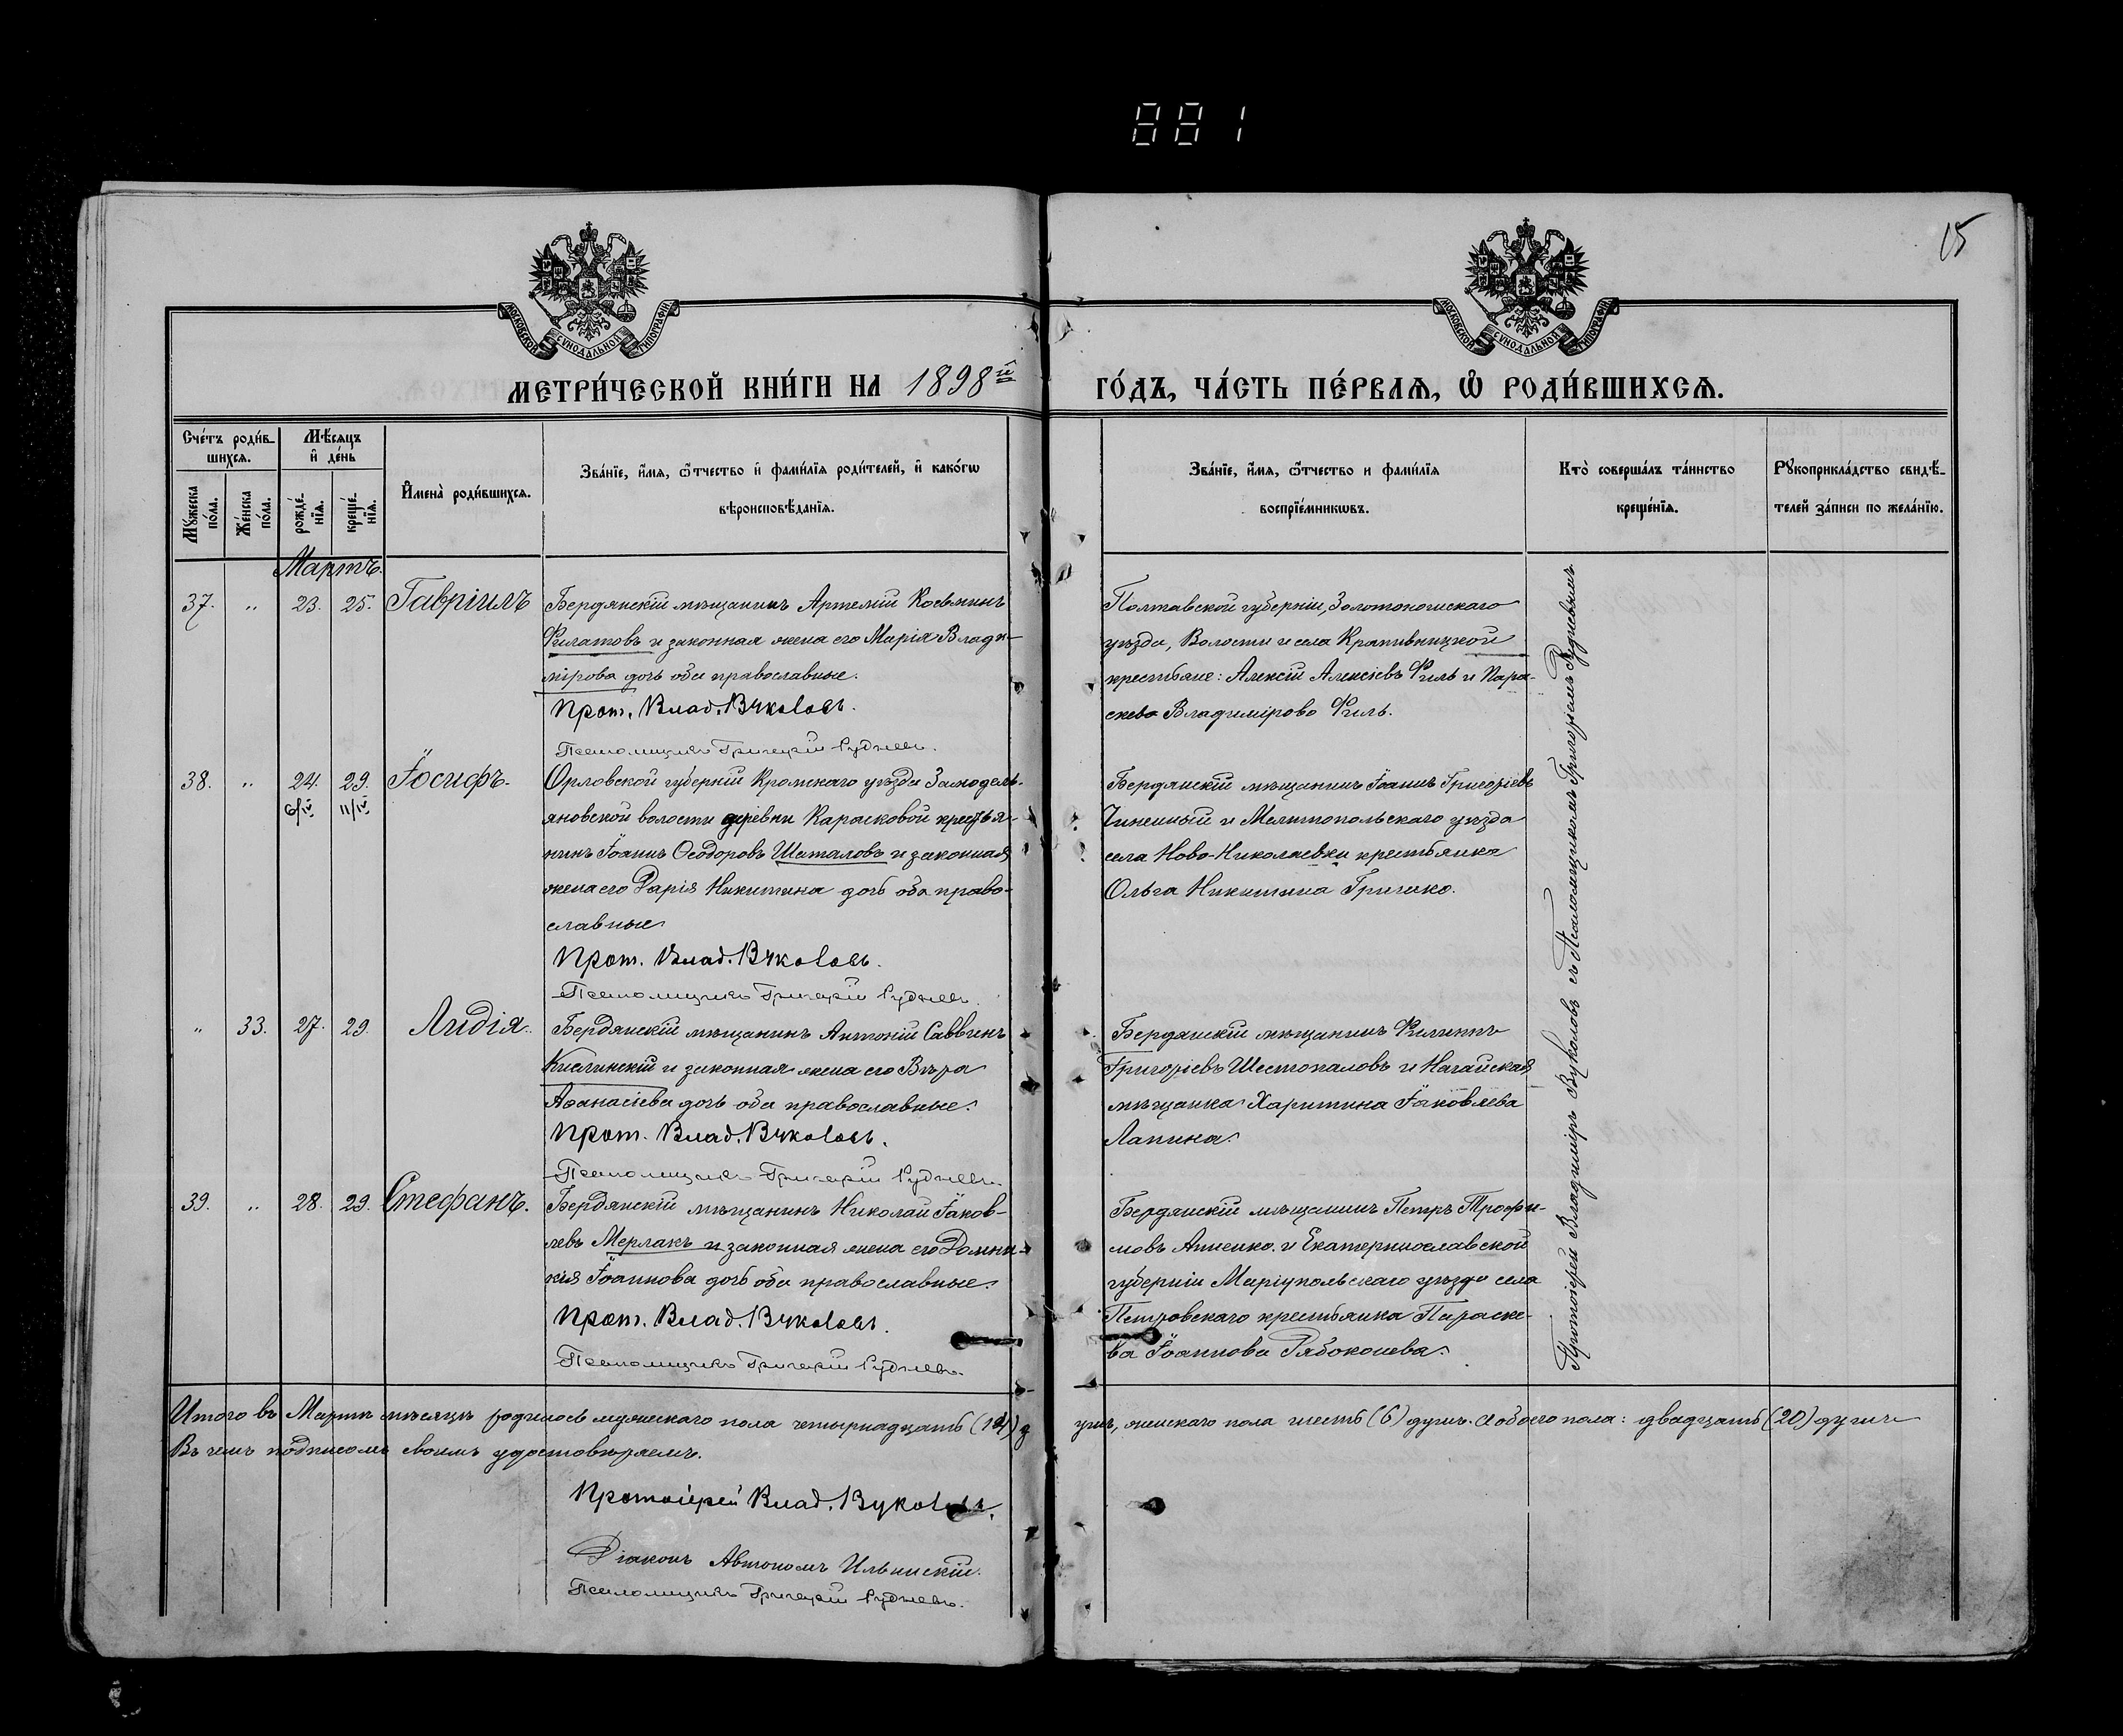 881
15
МОСКОВСКОЙ СѴНОДАЛЬНОЙ ТИПОГРАФІИ
МОСКОВСКОЙ СѴНОДАЛЬНОЙ ТИПОГРАФІИ
МЕТРИ́ЧЕСКОЙ КНИ́ГИ НА 1898й ГО́ДЪ, ЧА́СТЬ ПЕ́РВАѦ, Ѡ РОДИ́ВШИХСѦ.
Сче́тъ роди́в-
шихсѧ.
Мѣ́сѧцъ
и҆ де́нь
Мꙋ́жеска
по́ла.
Же́нска
по́ла.
рожде́-
нїѧ.
креще́-
нїѧ.
И҆мена̀ роди́вшихсѧ.
Зва́нїе, и҆́мѧ, ѻ҆́тчество и҆ фами́лїѧ роди́телей, и҆ како́гѡ
вѣроисповѣ́данїѧ.
Зва́нїе, и҆́мѧ, ѻ҆́тчество и фами́лїѧ
воспрїе́мникѡвъ.
Кто̀ соверша́лъ та́инство
креще́нїѧ.
Рꙋкоприкла́дство свидѣ́-
телей за́писи по жела́нїю.
Мартъ.
37. " 23. 25. Гавріилъ
Бердянскій мѣщанинъ Артемій Косьминъ
Филатовъ и законная жена его Марія Влади-
мірова дочь оба православные.
Прот. Влад. Вуколовъ.
Псаломщикъ Григорій Рудневъ.
Полтавской губерніи, Золотоношскаго
уѣзда, Волости и села Кропивницкой
крестьяне: Алексій Алексіевъ Филь и Пара-
скева Владимірова Филь.
38. " 24. 29. Іосифъ.
6/IV 11/IV
Орловской губерніи Кромскаго уѣзда
яновской волости деревни Карасковой крестья-
нинъ Іоаннъ Ѳеодоровъ Шаталовъ и законная
жена его Дарія Никитина дочь оба право-
славные
Прот. Влад. Вуколовъ.
Псаломщикъ Григорій Рудневъ.
Бердянскій мѣщанинъ Іоаннъ Григоріевъ
и Мелитопольскаго уѣзда
села Ново-Николаевки крестьянка
Ольга Никитина Гришко.
" 33. 27. 29. Лидія.
Бердянскій мѣщанинъ Антоній Саввинъ
Кислинскій и законная жена его Вѣра
Аѳанасіева дочь оба православные.
Прот. Влад. Вуколовъ.
Псаломщикъ Григорій Рудневъ.
Бердянскій мѣщанинъ Филиппъ
Григоріевъ Шестопаловъ и Ногайская
мѣщанка Харитина Іаковлева
Лапина.
39. " 28. 29. Стефанъ.
Бердянскій мѣщанинъ Николай Іаков-
левъ Мерлакъ и законная жена его Домни-
кія Іоаннова дочь оба православные.
Прот. Влад. Вуколовъ.
Псаломщикъ Григорій Рудневъ.
Бердянскій мѣщанинъ Петръ Трофи-
мовъ Анненко и Екатеринославской
губерніи Маріупольскаго уѣзда села
Петровскаго крестьянка Параске-
ва Іоаннова Рябоконева.
Протоіерей Владиміръ Вуколовъ съ Псаломщикомъ Григоріемъ Рудневымъ
Итого въ Мартѣ мѣсяцѣ родилось мужескаго пола четырнадцать (14) душъ, женскаго пола шесть (6) душъ. А обоего пола: двадцать (20) душъ
Въ чемъ подписомъ своимъ удостовѣряемъ.
Протоіерей Влад. Вуколовъ.
Діаконъ Автономъ Ильинскій.
Псаломщикъ Григорій Рудневъ.